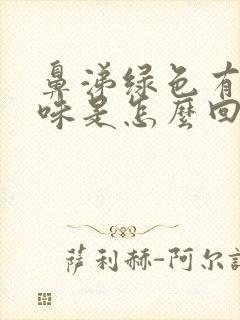 鼻涕绿色有
味是怎麼回
萨利赫-阿尔